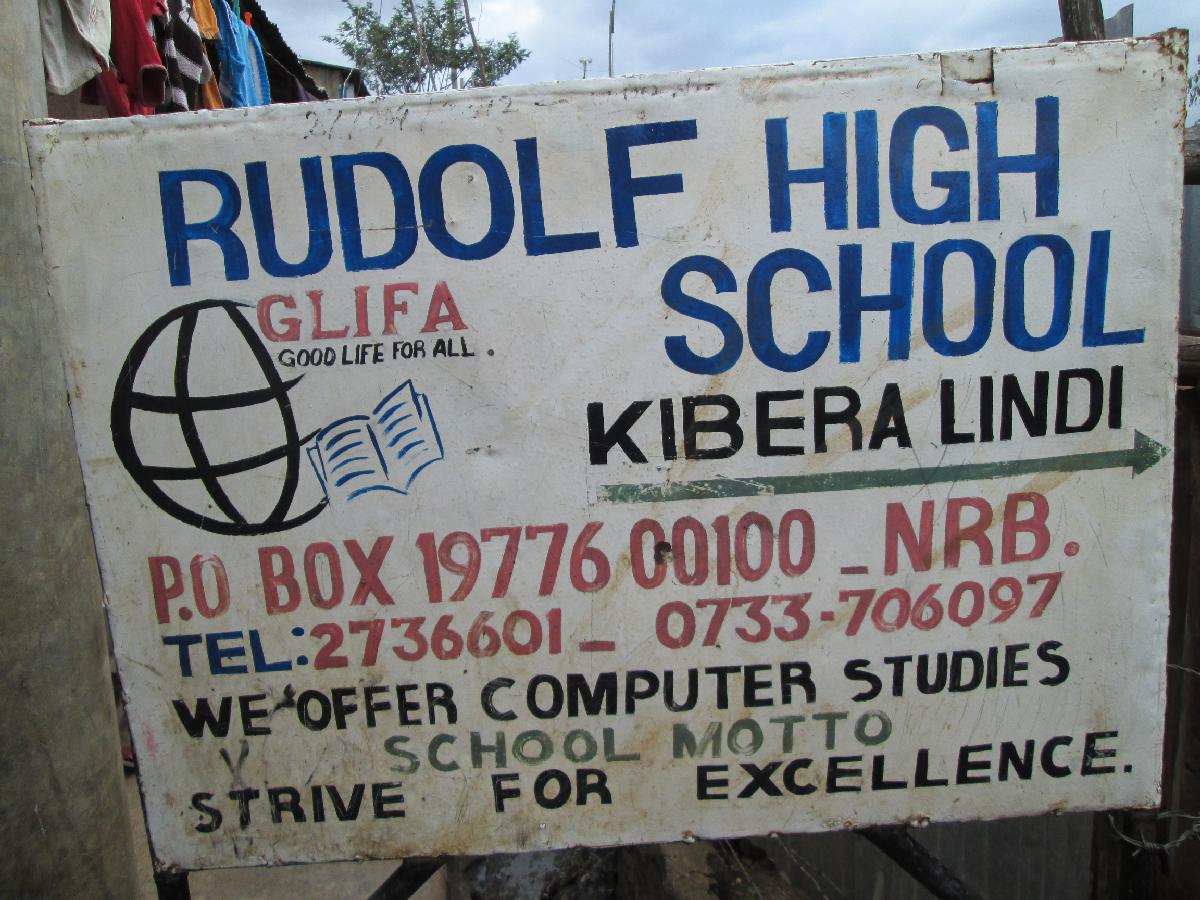 RUDOLF HIGH
SCHOOL
GLIFA
GOOD LIFE FOR ALL.
KIBERA LINDI
P.O BOX 19776 00100 _ NRB.
TEL: 2736601 _ 0733-706097
WE OFFER COMPUTER STUDIES
SCHOOL MOTTO
STRIVE FOR EXCELLENCE.